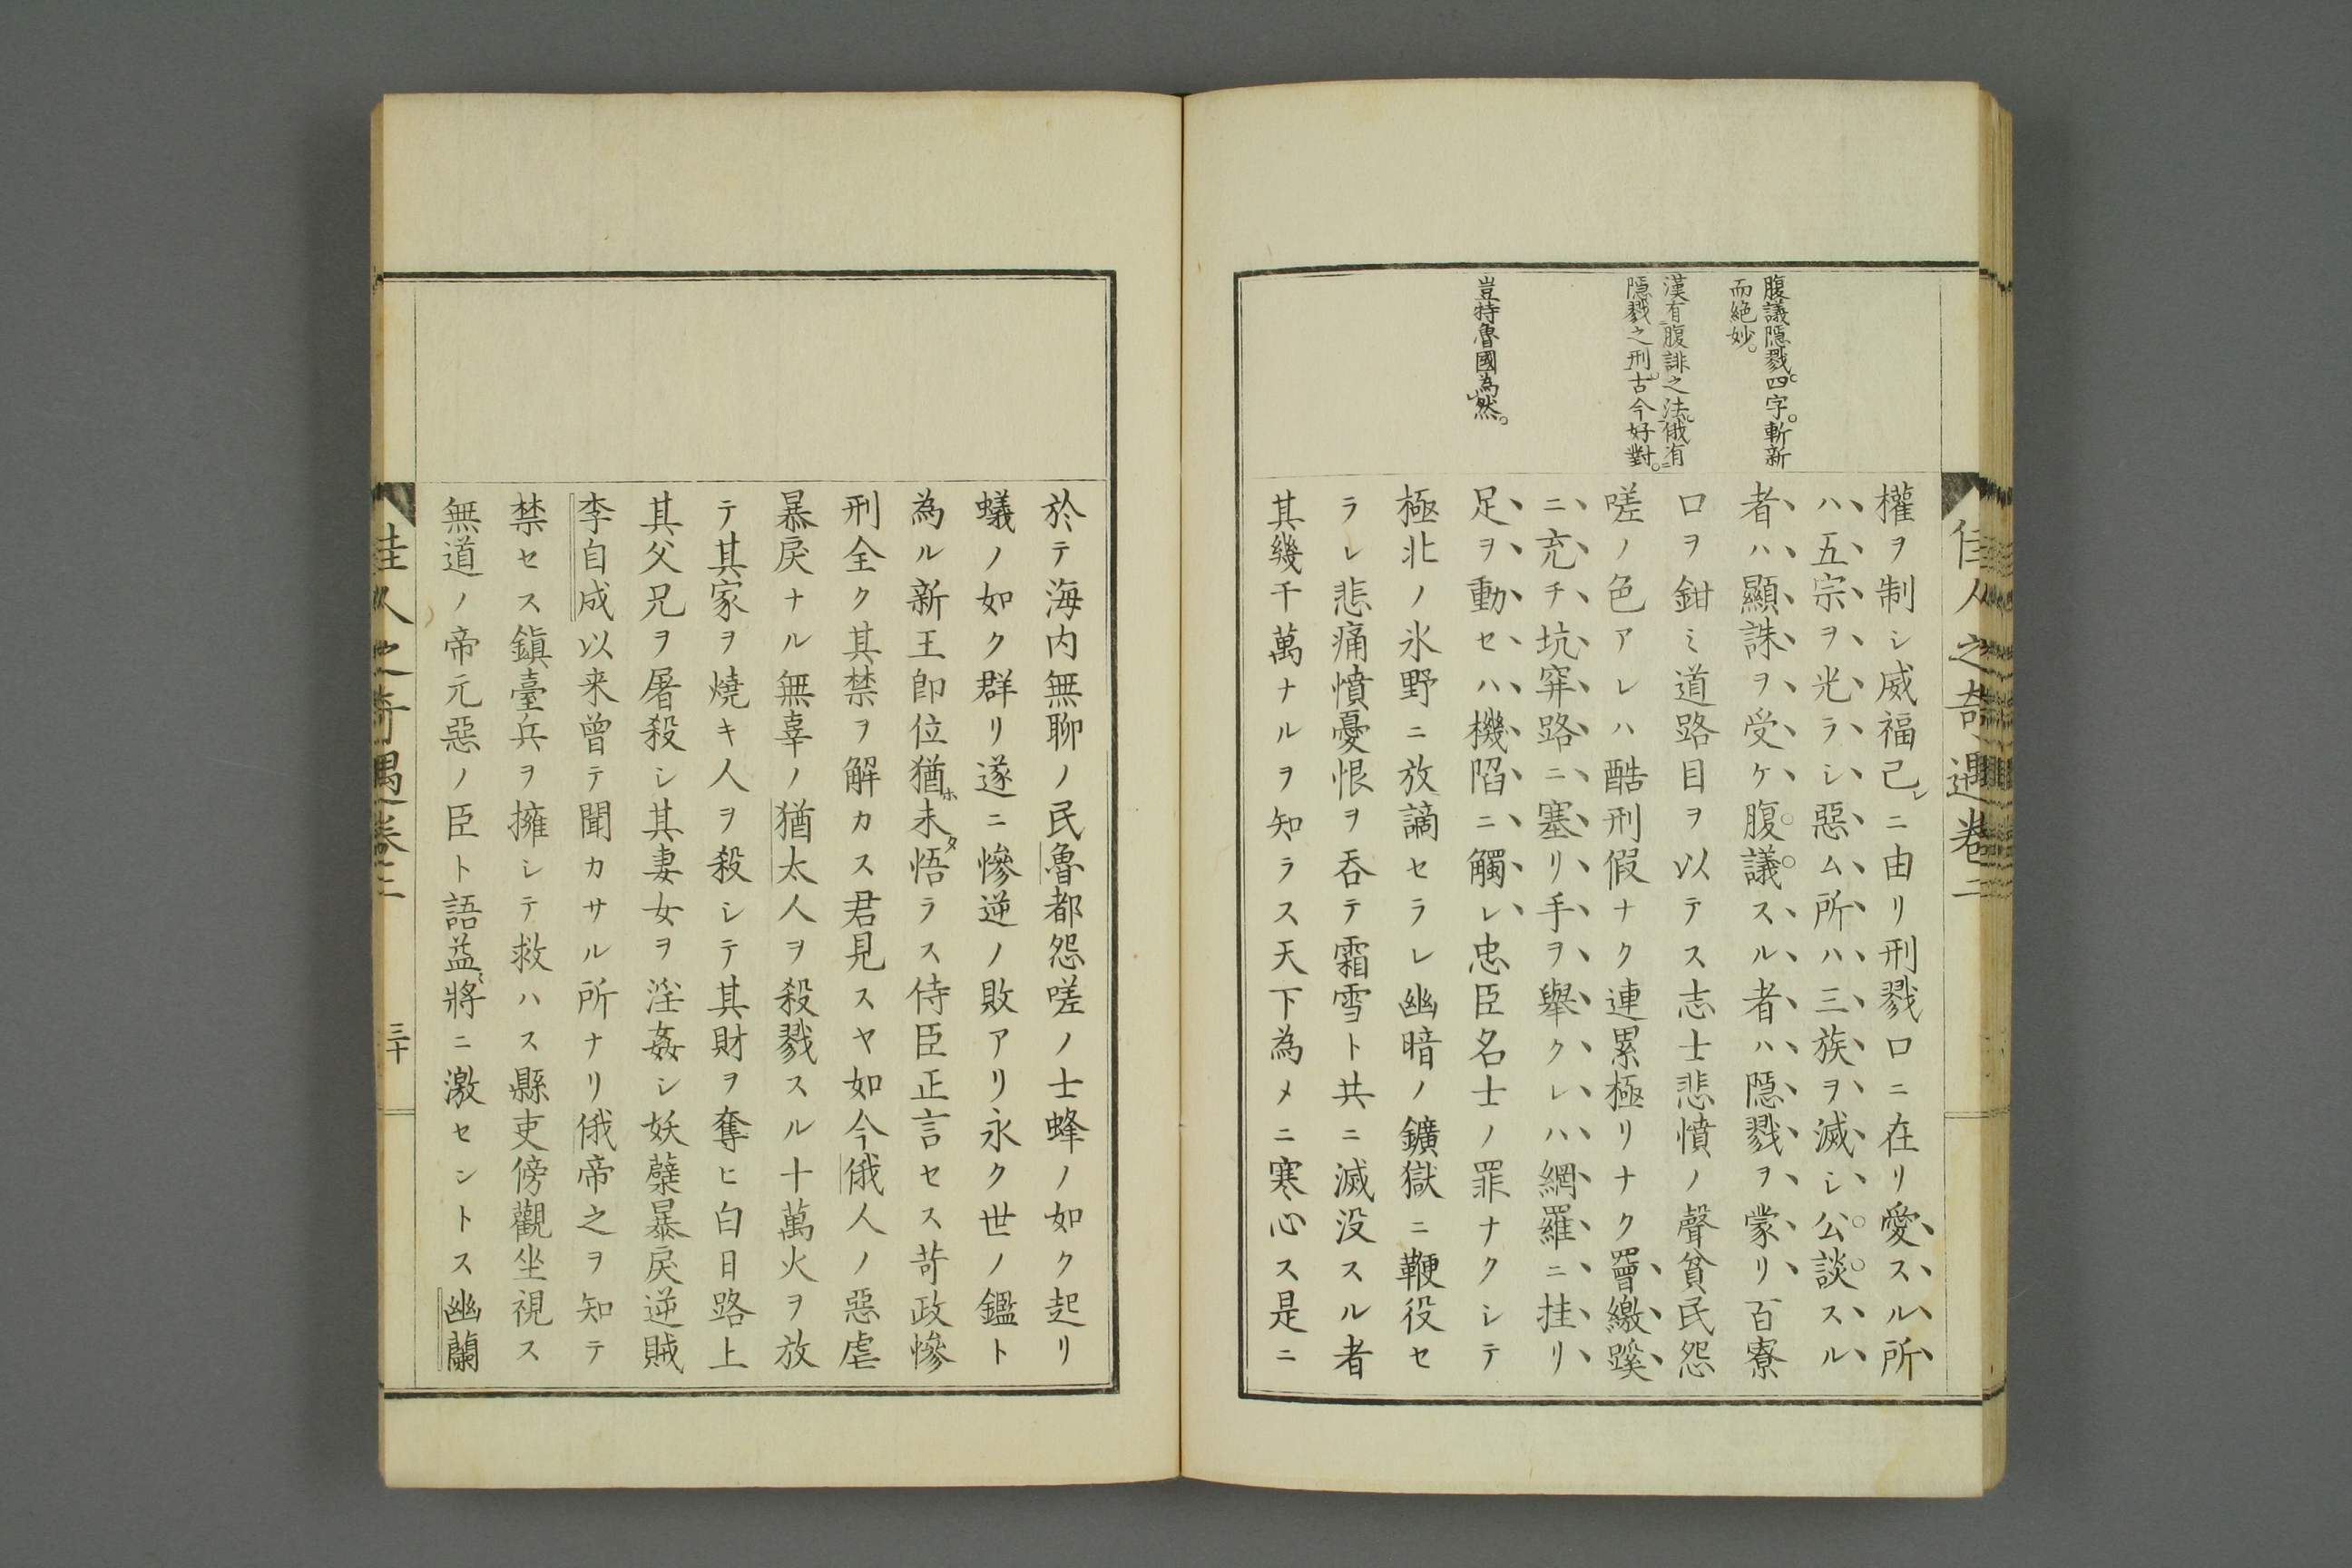 佳人之奇遇卷二
腹議隱戮四字。斬新
而絶妙。
漢有腹誹之法俄有
隱戮之刑古今好對。
豈特魯國為然。
權ヲ制シ威福己レニ由リ刑戮口ニ在リ愛スル所
ハ五宗ヲ光ラシ惡ム所ハ三族ヲ滅シ公談スル
者ハ顯誅ヲ受ケ腹議スル者ハ隱戮ヲ蒙リ百寮
口ヲ鉗ミ道路目ヲ以テス志士悲憤ノ聲貧民怨
嗟ノ色アレハ酷刑假ナク連累極リナク罾繳蹊
ニ充チ坑穽路ニ塞リ手ヲ舉クレハ網羅ニ挂リ
足ヲ動セハ機陷ニ觸レ忠臣名士ノ罪ナクシテ
極北ノ氷野ニ放謫セラレ幽暗ノ鑛獄ニ鞭役セ
ラレ悲痛憤憂恨ヲ呑テ霜雪ト共ニ滅没スル者
其幾千萬ナルヲ知ラス天下為メニ寒心ス是ニ
於テ海内無聊ノ民魯都怨嗟ノ士蜂ノ如ク起リ
蟻ノ如ク群リ遂ニ慘逆ノ敗アリ永ク世ノ鑑ト
為ル新王即位猶ホ未タ悟ラス侍臣正言セス苛政慘
刑全ク其禁ヲ解カス君見スヤ如今俄人ノ惡虐
暴戻ナル無辜ノ猶太人ヲ殺戮スル十萬火ヲ放
テ其家ヲ燒キ人ヲ殺シテ其財ヲ奪ヒ白日路上
其父兄ヲ屠殺シ其妻女ヲ淫姦シ妖蘖暴戻逆賊
李自成以来曾テ聞カサル所ナリ俄帝之ヲ知テ
禁セス鎭臺兵ヲ擁シテ救ハス縣吏傍觀坐視ス
無道ノ帝元惡ノ臣ト語益〻將ニ激セントス幽蘭
佳人之奇遇卷二
三十